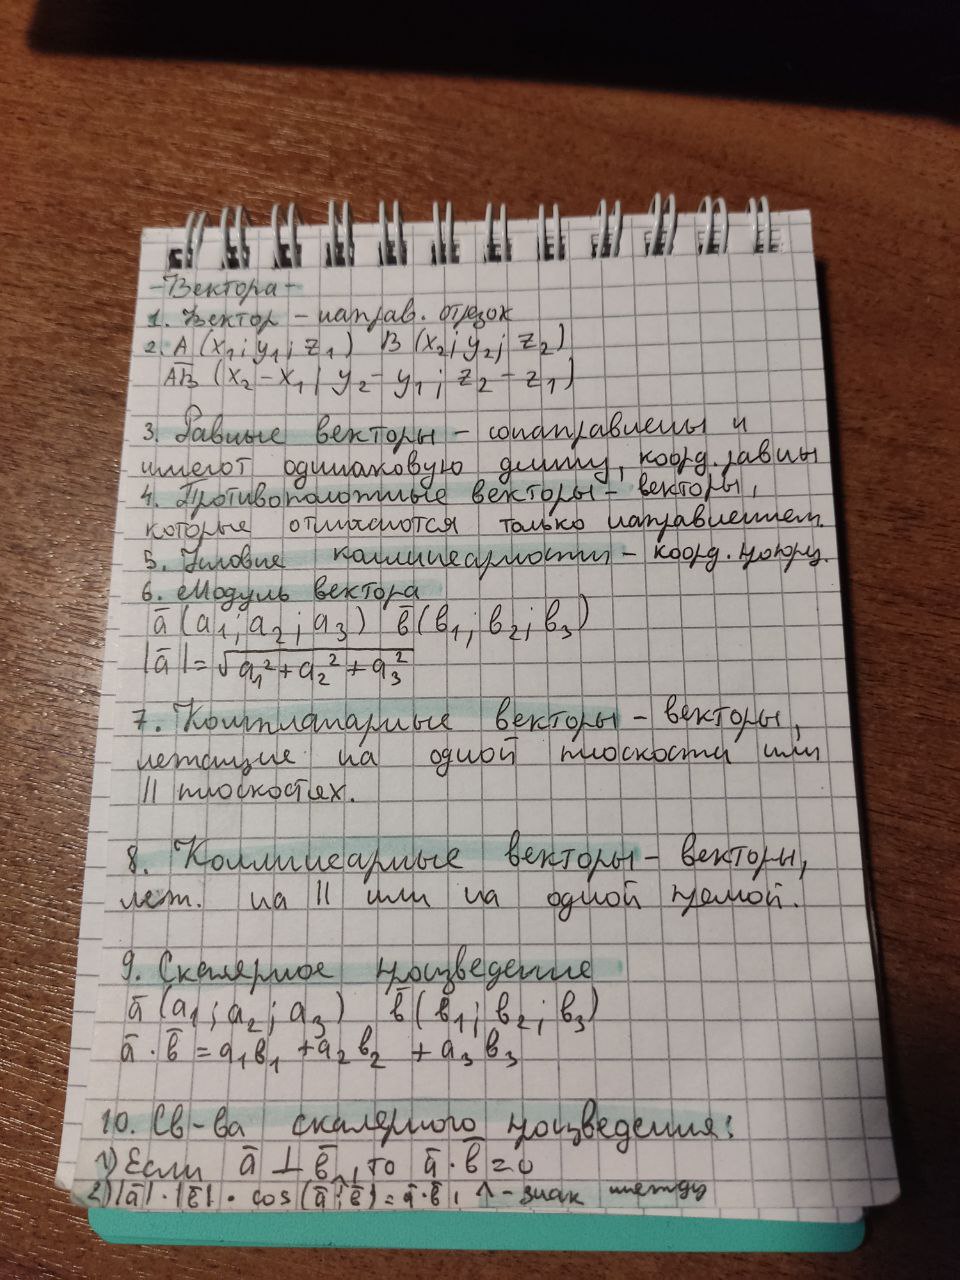 -Вектора-
1. Вектор - направ. отрезок
2. A (x₁; y₁; z₁) B (x₂; y₂; z₂)
A̅B̅ (x₂ - x₁; y₂ - y₁; z₂ - z₁)
3. Равные векторы - сонаправлены и
имеют одинаковую длину, коорд. равны
4. Противоположные векторы - векторы,
которые отличаются только направлением.
5. Условие коллинеарности - коорд. пропорц.
6. Модуль вектора
a̅ (a₁; a₂; a₃) b̅ (b₁; b₂; b₃)
|a̅| = √a₁² + a₂² + a₃²
7. Компланарные векторы - векторы,
лежащие на одной плоскости или
|| плоскостях.
8. Коллинеарные векторы - векторы,
леж. на || или на одной прямой.
9. Скалярное произведение
a̅ (a₁; a₂; a₃) b̅ (b₁; b₂; b₃)
a̅ · b̅ = a₁b₁ + a₂b₂ + a₃b₃
10. Св-ва скалярного произведения:
1) Если a̅ ⊥ b̅, то a̅ · b̅ = 0
2) |a̅| · |b̅| · cos(a̅ ^ b̅) = a̅ · b̅, ^ - знак между